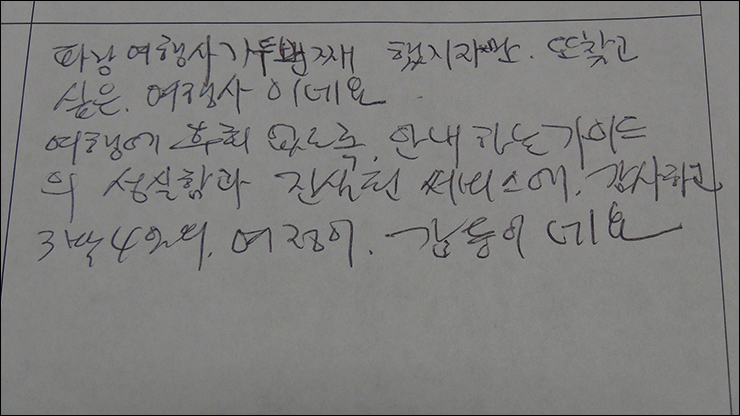 파랑여행사가 두번째 했지만. 또찾고
싶은. 여행사 이네요
여행에 후회 없도록. 안내 하는 가이드
의 성실함과 진심된 써비스에. 감사하고
3박4일의. 여정이. 감동이 네요